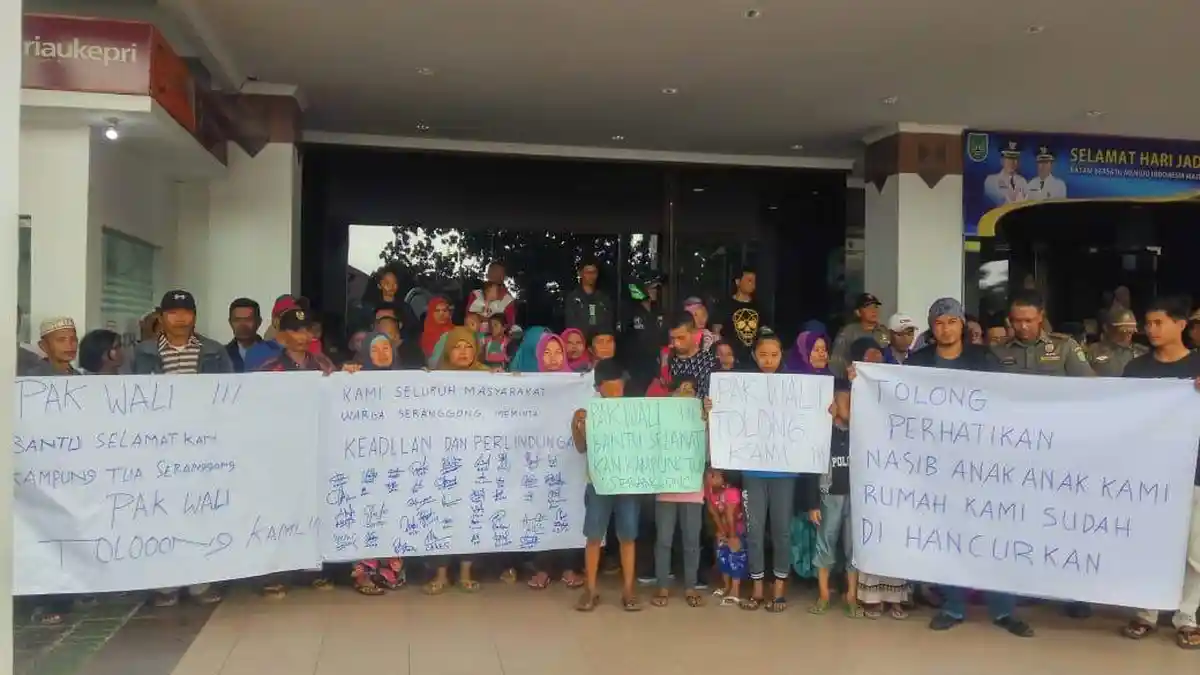 riaukepri
SELAMAT HARI JAD
BATAM BERSATU MENUJU INDONESIA MA
PAK WALI !!!
BANTU SELAMATKAN
KAMPUNG TUA SERANGGONG
PAK WALI
TOLOOONG KAMI !!!
KAMI SELURUH MASYARAKAT
WARGA SERANGGONG MEMINTA
KEADILAN DAN PERLINDUNGAN
PAK WALI !!!
BANTU SELAMAT
KAN KAMPUNG TUA
"SERANGGONG"
PAK WALI
TOLONG
KAMI !!!
POLO
TOLONG
PERHATIKAN
NASIB ANAK ANAK KAMI
RUMAH KAMI SUDAH
DI HANCURKAN